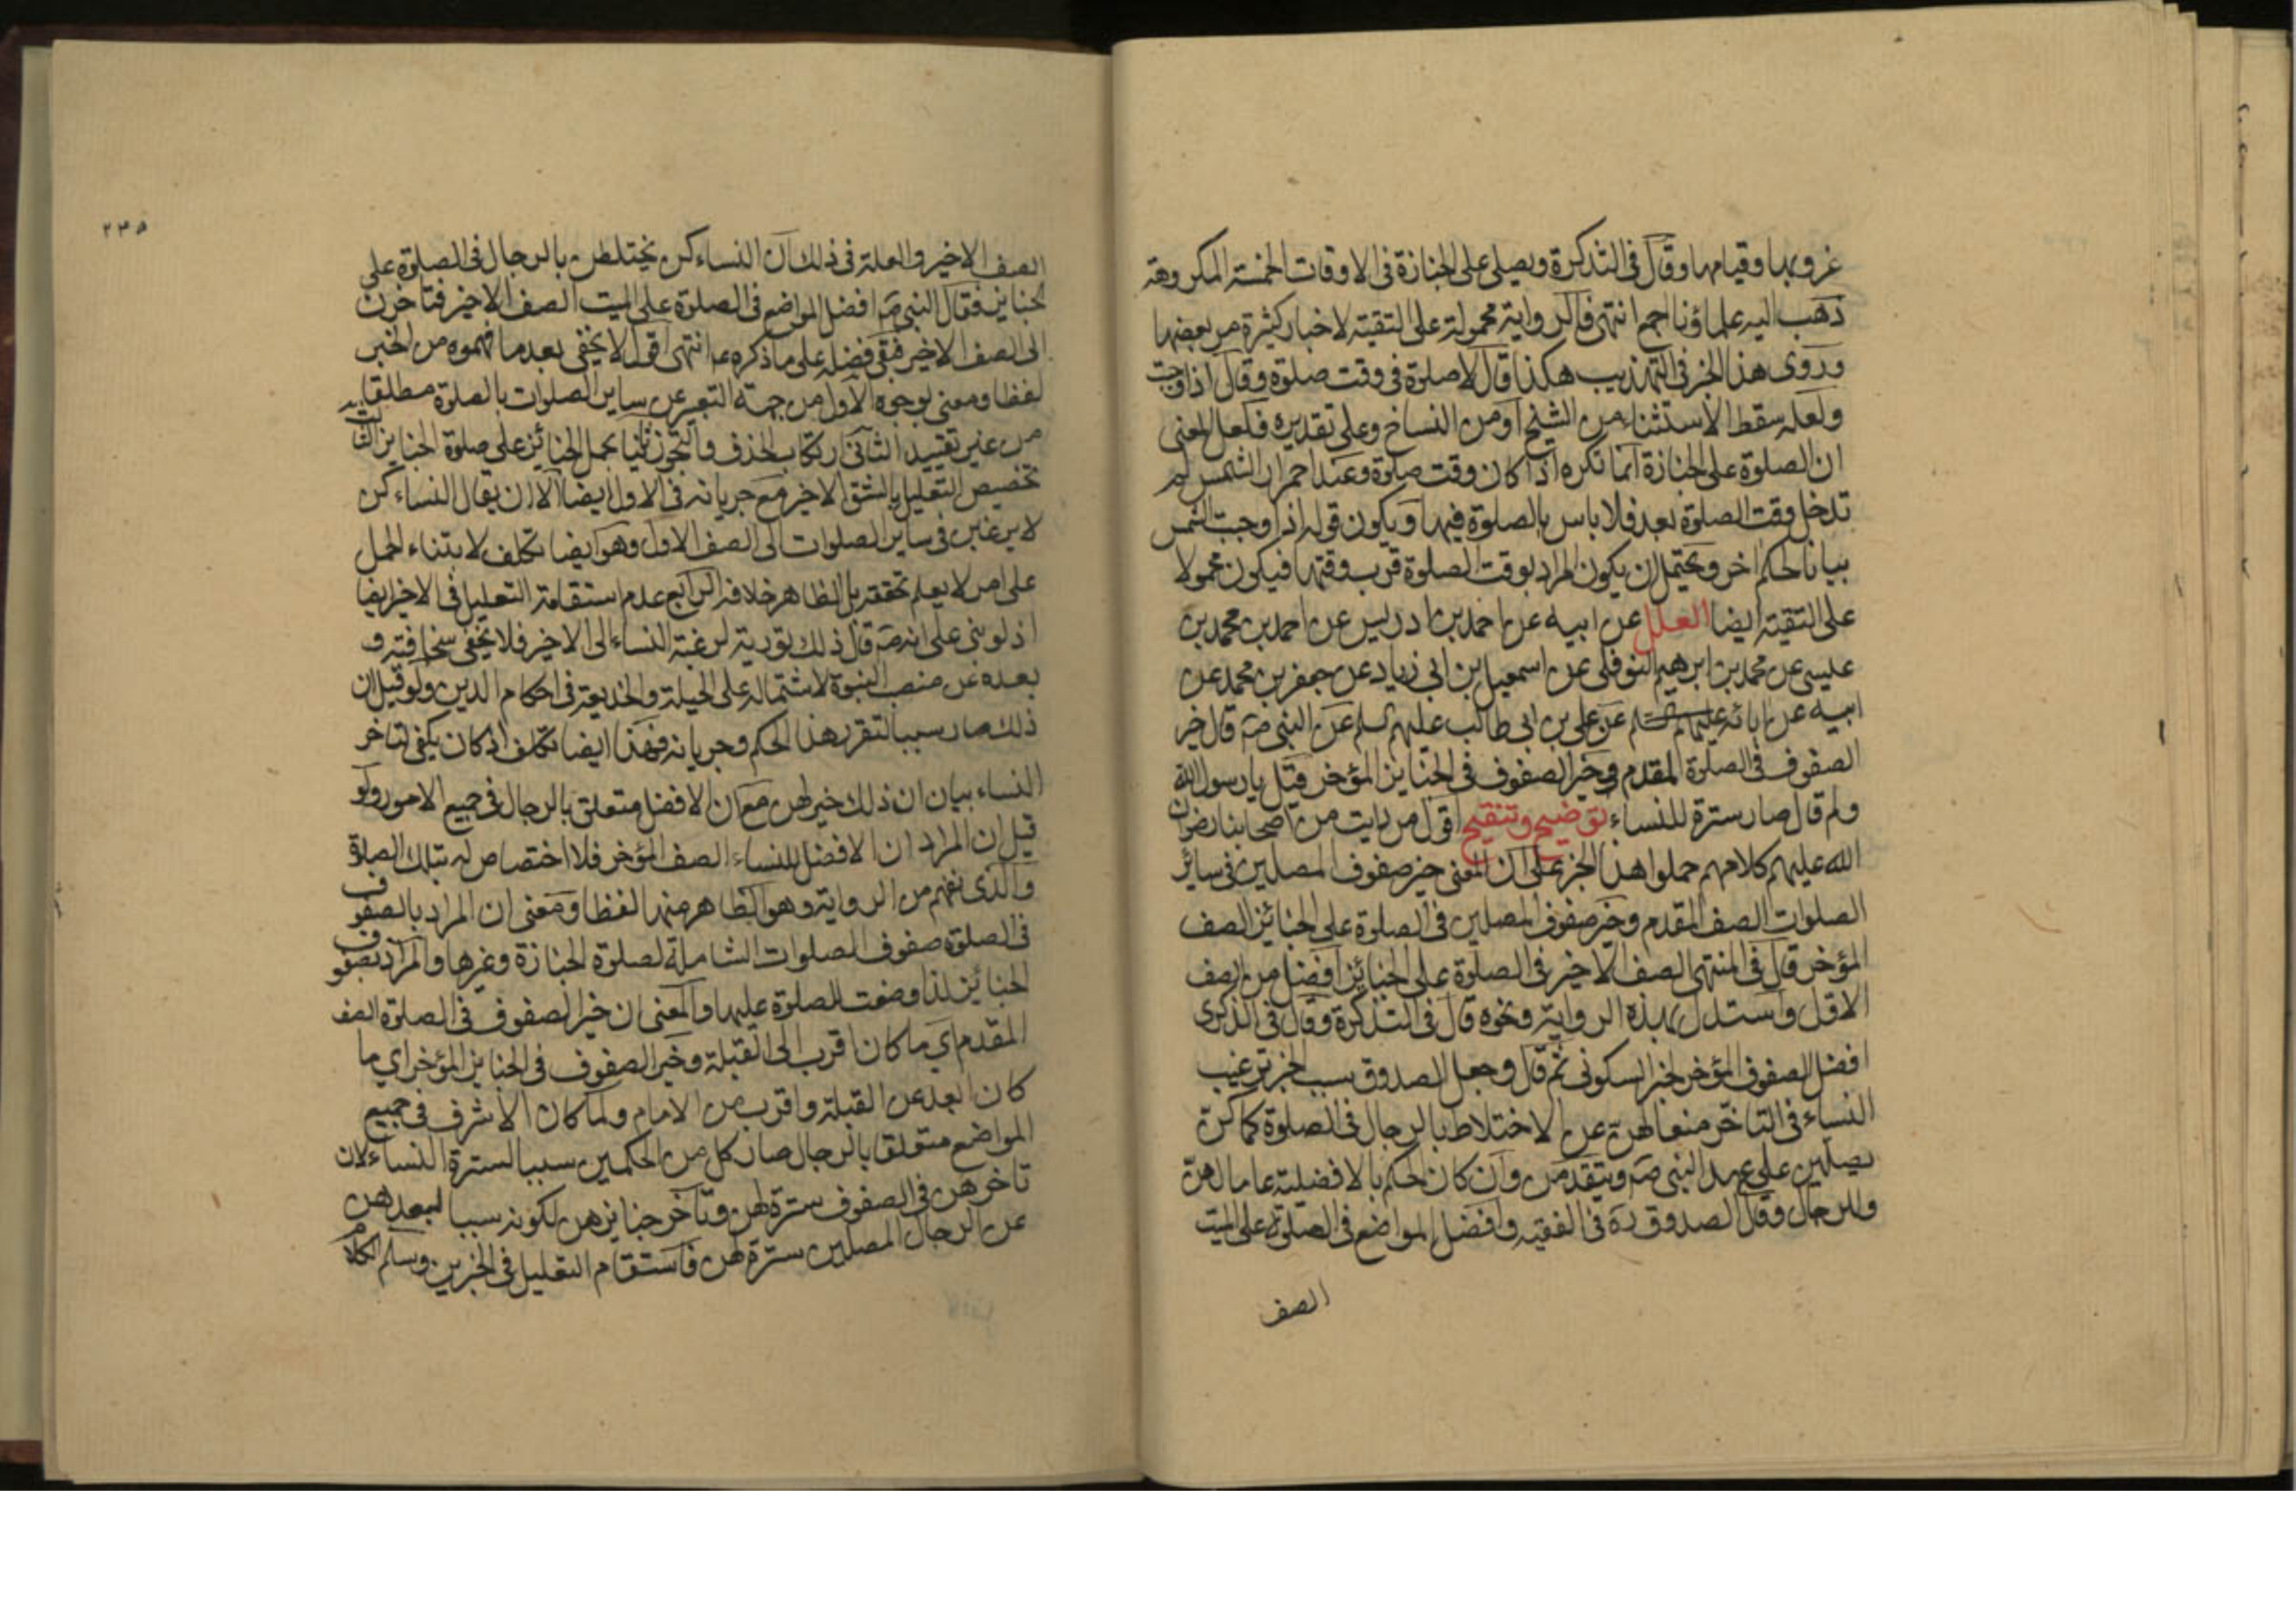 غروبها وقيامها وقال فى التذكرة ويصلى على الجنازة فى الاوقات الخمسة المكروهة
ذهب اليه علماؤنا اجمع انتهى فالرواية محمولة على التقية لاخبار كثيرة مر بعضها
وروى هذا الخبر فى التهذيب هكذا قال لا صلوة فى وقت صلوة وقال اذا وجبت
ولعله سقط الاستثناء من الشيخ او من النساخ وعلى تقديره فلعل المعنى
ان الصلوة على الجنازة انما تكره اذا كان وقت صلوة وعند احمرار الشمس لم
تدخل وقت الصلوة بعد فلا باس بالصلوة فيها ويكون قوله اذا وجبت الشمس
بيانا لحكم اخر ويحتمل ان يكون المراد بوقت الصلوة قرب وقتها فيكون محمولا
على التقية ايضا العلل عن ابيه عن احمد بن ادريس عن احمد بن محمد بن
عليسى عن محمد بن ابرهيم النوفلى عن اسمعيل بن ابى زياد عن جعفر بن محمد عن
ابيه عن ابائه عليهم السلم عن على بن ابى طالب عليهم السلم عن النبى صَ قال خير
الصفوف فى الصلوة المقدم وخير الصفوف فى الجنايز المؤخر قيل يا رسول الله
ولم قال صار سترة للنساء توضيح وتنقيح اقول من رايت من اصحابنا رضوان
الله عليهم كلامهم حملوا هذا الخبر على ان المعنى خير صفوف المصلين فى سائر
الصلوات الصف المقدم وخير صفوف المصلين فى الصلوة على الجنائز الصف
المؤخر قال فى المنتهى الصف الاخير فى الصلوة على الجنائز افضل من الصف
الاول واستدل بهذه الرواية ونحوه قال فى التذكرة وقال فى الذكرى
افضل الصفوف المؤخر لخبر السكونى ثم قال وجعل الصدوق سبب الخبر ترغيب
النساء فى التاخر منعا لهن عن الاختلاط بالرجال فى الصلوة كما كن
يصلين على عهد النبى صَ ويتقدمن وان كان الحكم بالافضلية عاما لهن
وللرجال وقال الصدوق ره فى الفقيه وافضل المواضع فى الصلوة على الميت
الصف
٢٣٥
الصف الاخير والعلة فى ذلك ان النساء كن يختلطن بالرجال فى الصلوة على
الجنايز فقال النبى صَ افضل المواضع فى الصلوة على الميت الصف الاخير فتاخرن
الى الصف الاخير فبقى فضله على ما ذكره ع انتهى اقول لا يخفى بعد ما فهموه من الخبر
لفظا ومعنى لوجوه الاول من جهة التعبير عن ساير الصلوات بالصلوة مطلقا
من غير تقييد الثانى ارتكاب الحذف والتجوز ثانيا بحمل الجنائز على صلوة الجنايز الثالث
تخصيص التعليل بالشق الاخير مع جريانه فى الاول ايضا الا ان يقال النساء كن
لا يرغبن فى ساير الصلوات الى الصف الاول وهو ايضا تكلف لابتناء الحمل
على امر لا يعلم تحققه بل الظاهر خلافه الرابع عدم استقامة التعليل فى الاخر ايضا
اذ لو بنى على انه صَ قال ذلك تورية لرغبة النساء الى الاخير فلا يخفى سخافته و
بعده عن منصب النبوة لاشتماله على الحيلة والخديعة فى احكام الدين ولو قيل ان
ذلك صار سببا لتقرر هذا الحكم وجريانه فهذا ايضا تكلف اذ كان يكفى لتاخر
النساء بيان ان ذلك خير لهن مع ان الافضل متعلق بالرجال فى جميع الامور ولو
قيل ان المراد ان الافضل للنساء الصف المؤخر فلا اختصاص له بتلك الصلوة
والذى نفهم من الرواية وهو الظاهر منها لفظا ومعنى ان المراد بالصفوف
فى الصلوة صفوف الصلوات الشاملة لصلوة الجنازة وغيرها والمراد بصفوف
الجنائز اذا وضعت للصلوة عليها والمعنى ان خير الصفوف فى الصلوة الصف
المقدم اى ما كان اقرب الى القبلة وخير الصفوف فى الجنايز المؤخر اى ما
كان ابعد عن القبلة واقرب من الامام ولما كان الاشرف فى جميع
المواضع متعلقا بالرجال صار كل من الحكمين سببا لسترة النساء لان
تاخرهن فى الصفوف سترة لهن وتاخر جنايزهن لكونه سببا لبعدهن
عن الرجال المصلين سترة لهن فاستقام التعليل فى الخبرين وسلم الكلام